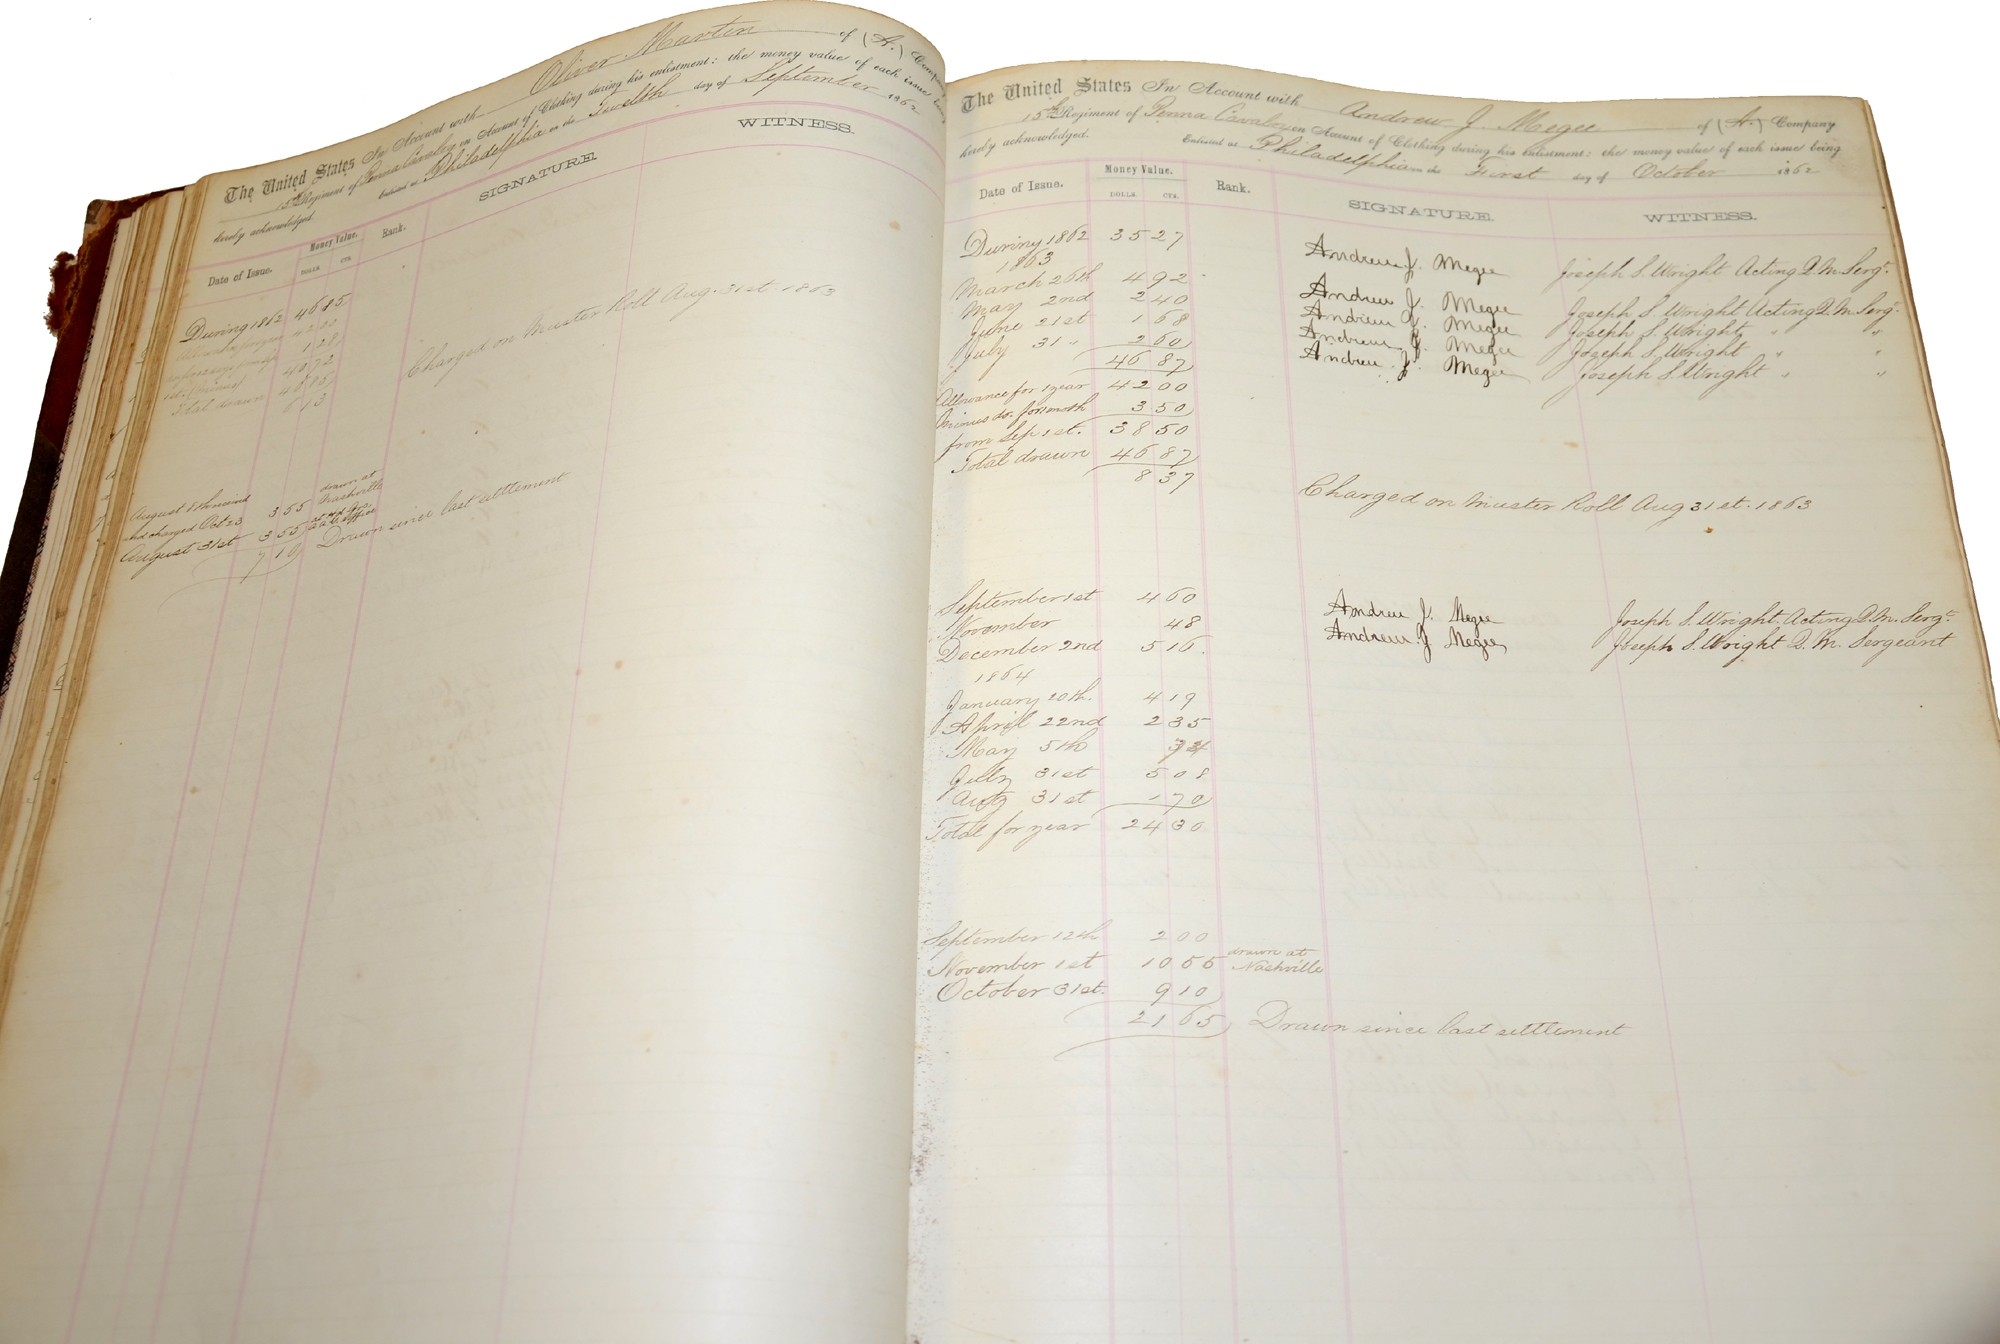 The United States In Account with Oliver Martin of (A.) Company
15th Regiment of Penna Cavalry on Account of Clothing during his enlistment: the money value of each issue being
hereby acknowledged. Enlisted at Philadelphia on the Twelfth day of September 1862
Date of Issue. Money Value. Rank. SIGNATURE WITNESS.
DOLLS. CTS.
During 1862 46 85
Charged on Muster Roll Aug. 31st. 1863
Total drawn 48 85
6 13
drawn at
August 3 55 Nashville
and charged Oct 23
August 31st 3 55
7 10 Drawn since last settlement
The United States In Account with Andrew J. Megee of (A.) Company
15th Regiment of Penna Cavalry on Account of Clothing during his enlistment: the money value of each issue being
hereby acknowledged. Enlisted at Philadelphia on the First day of October 1862
Date of Issue. Money Value. Rank. SIGNATURE. WITNESS.
DOLLS. CTS.
During 1862 35 27 Andrew J. Megee Joseph S. Wright Acting Q.M. Sergt.
1863
March 26th 4 92 Andrew J. Megee Joseph S. Wright Acting Q.M. Sergt.
May 2nd 2 40 Andrew J. Megee Joseph S. Wright " "
June 21st 1 68 Andrew J. Megee Joseph S. Wright " "
July 31 " 2 60 Andrew J. Megee Joseph S. Wright " "
46 87
Allowance for 1 year 42 00
Minus do. for 1 month 3 50
from Sep 1st. 38 50
Total drawn 46 87
8 37 Charged on Muster Roll Aug 31st. 1863
September 1st 4 60 Andrew J. Megee Joseph S. Wright Acting Q.M. Sergt.
November 48 Andrew J. Megee Joseph S. Wright Q.M. Sergeant
December 2nd 5 16.
1864
January 20th. 4 19
April 22nd 2 35
May 5th 74
July 31st 5 08
Aug 31st 1 70
Total for year 24 30
September 12th 2 00
November 1st 10 55 drawn at Nashville
October 31st. 9 10
21 65 Drawn since last settlement